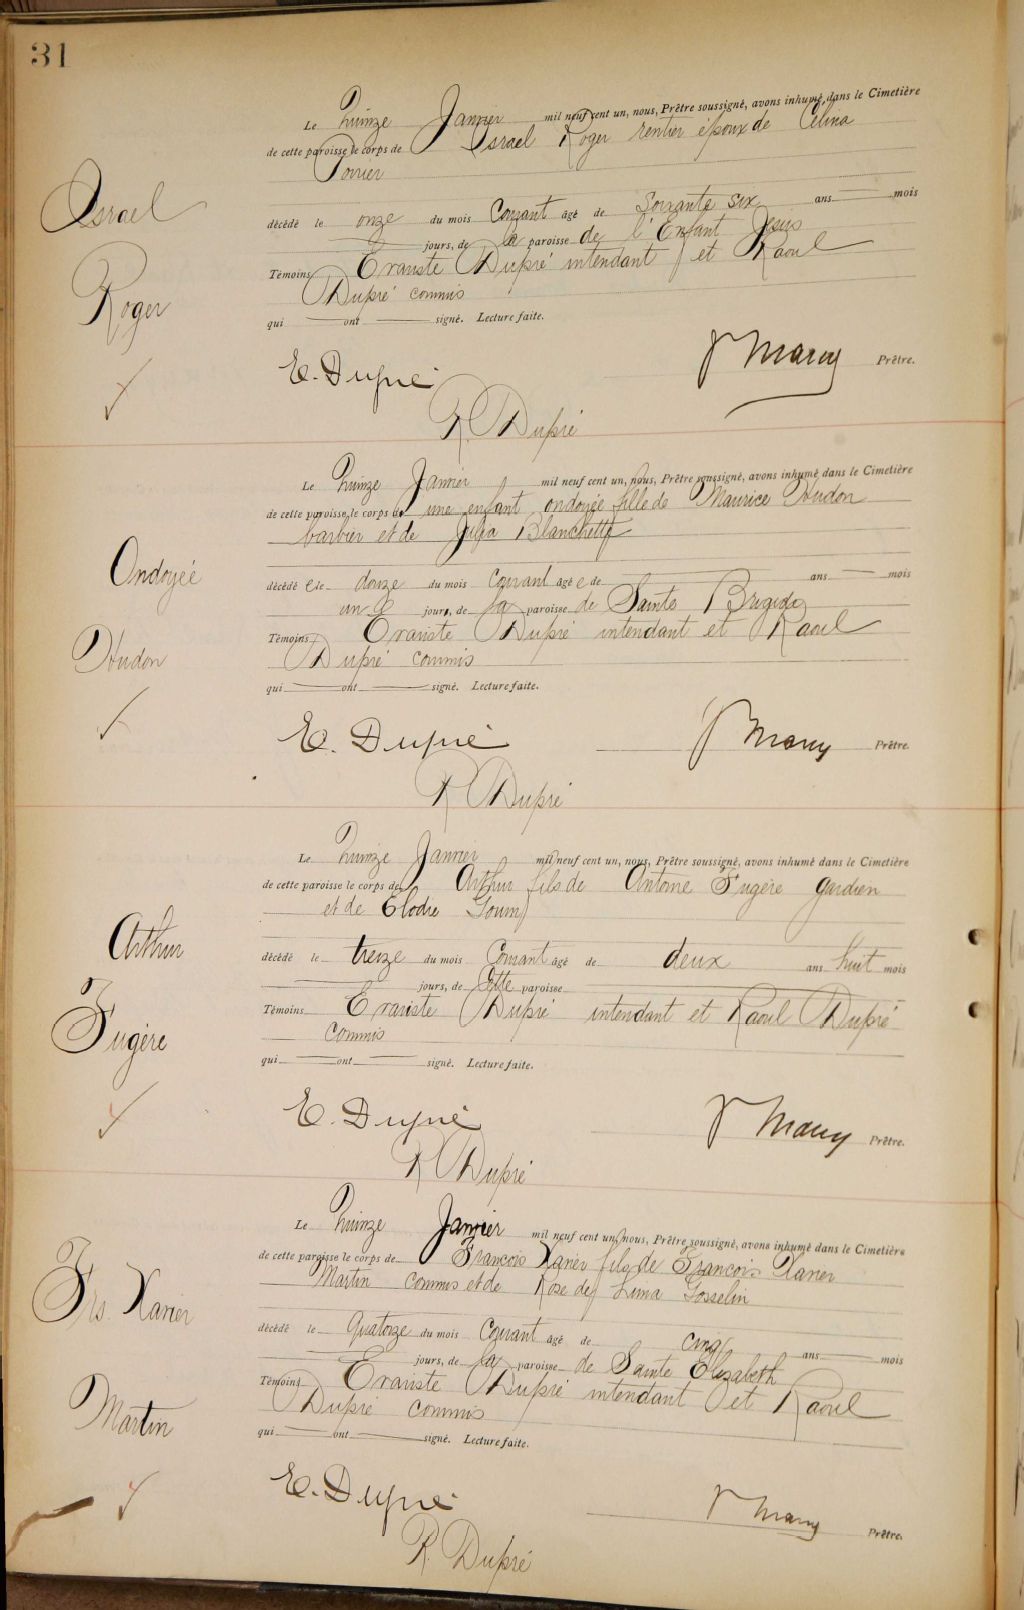 31
Le quinze Janvier mil neuf cent un, nous, Prêtre soussigné, avons inhumé dans le Cimetière
de cette paroisse le corps de Israel Roger rentier époux de Célina
Poirier
Israel
décédé le onze du mois Courant âgé de Soixante six ans mois
jours, de la paroisse de l'Enfant Jésus
Témoins Evariste Dupré intendant et Raoul
Roger
Dupré commis
qui ont signé. Lecture faite.
E. Dupré
Prêtre.
R. Dupré
Le quinze Janvier mil neuf cent un, nous, Prêtre soussigné, avons inhumé dans le Cimetière
de cette paroisse le corps de une enfant ondoyée fille de Maurice Hudon
barbier et de Julia Blanchette
Ondoyée
décédé e le douze du mois Courant âgé e de ans mois
un jours, de la paroisse de Sainte Brigide
Témoins Evariste Dupré intendant et Raoul
Hudon
Dupré commis
qui ont signé. Lecture faite.
E. Dupré
Prêtre.
R Dupré
Le quinze Janvier mil neuf cent un, nous, Prêtre soussigné, avons inhumé dans le Cimetière
de cette paroisse le corps de Arthur fils de Antoine Fugère gardien
et de Elodie
Arthur
décédé le treize du mois Courant âgé de deux ans huit mois
jours, de Cette paroisse
Témoins Evariste Dupré intendant et Raoul Dupré
Fugère
commis
qui ont signé. Lecture faite.
E. Dupré
Prêtre.
R Dupré
Le quinze Janvier mil neuf cent un, nous, Prêtre soussigné, avons inhumé dans le Cimetière
de cette paroisse le corps de François Xavier fils de François Xavier
Martin commis et de Rose de Lima Gosselin
Frs. Xavier
décédé le quatorze du mois courant âgé de cinq ans mois
jours, de la paroisse de Sainte Elizabeth
Témoins Evariste Dupré intendant et Raoul
Martin
Dupré commis
qui ont signé. Lecture faite.
E. Dupré
Prêtre.
R. Dupré